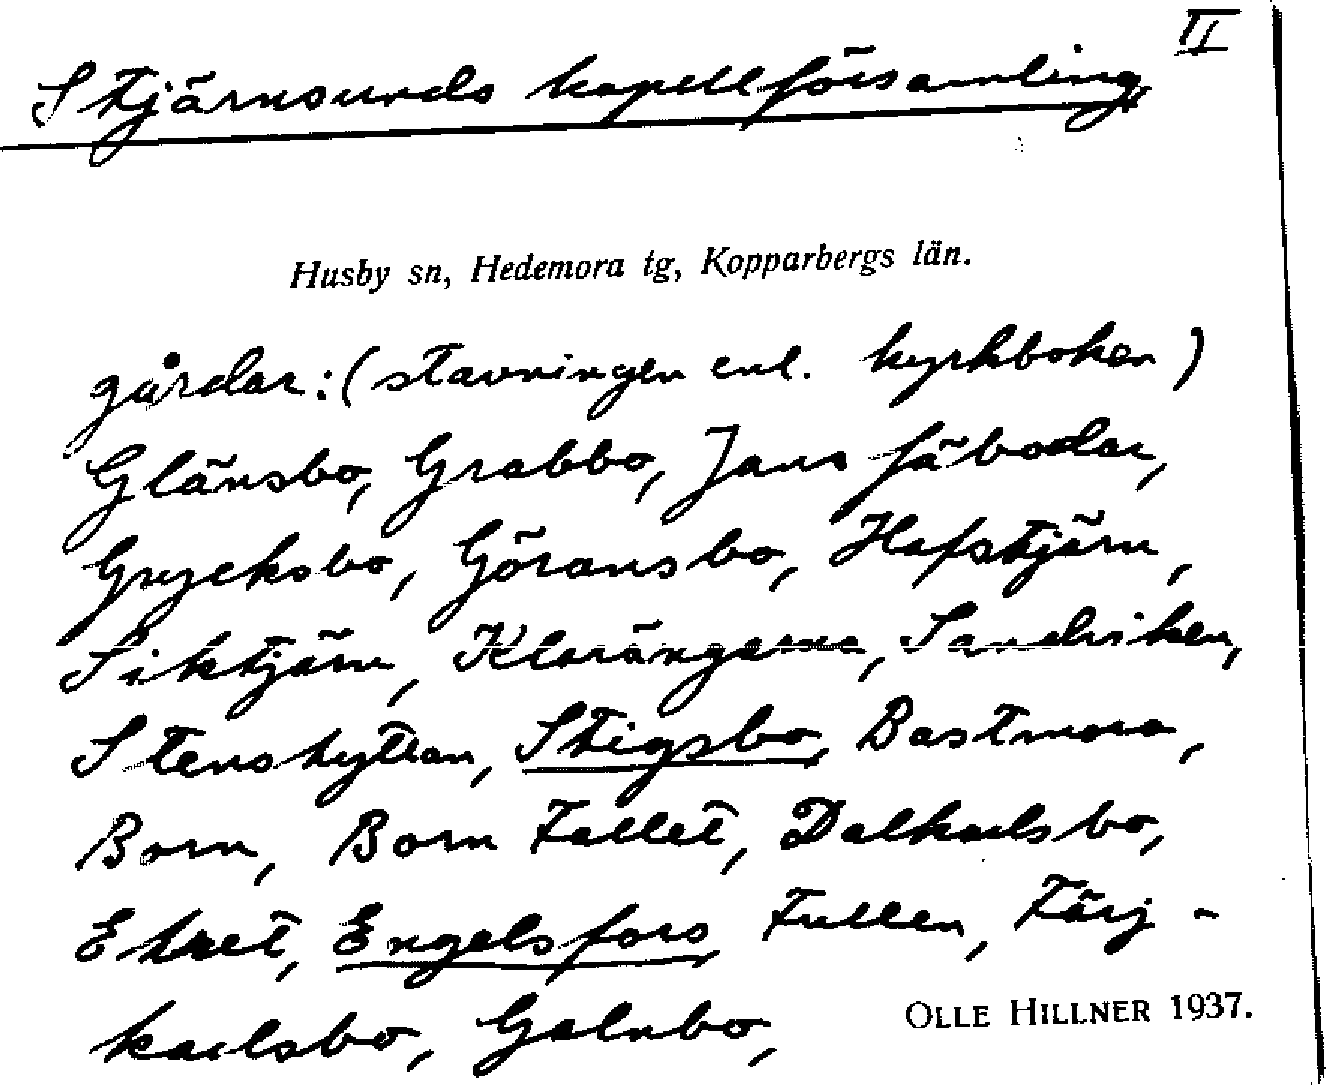 II
Stjärnsunds kapellförsamling
Husby sn, Hedemora tg, Kopparbergs län.
gårdar: (stavningen enl. kyrkboken)
Glänsbo, Grabbo, Jans fäbodar,
Grycksbo, Göransbo, Hafstjärn,
Siktjärn, Klarängarna, Sandviken,
Stenshyttan, Stigsbo, Bastmora,
Born, Born Fallet, Dalkarlsbo,
Ekret, Engelsfors, Fullen, Färj-
karlsbo, Galnbo,
OLLE HILLNER 1937.